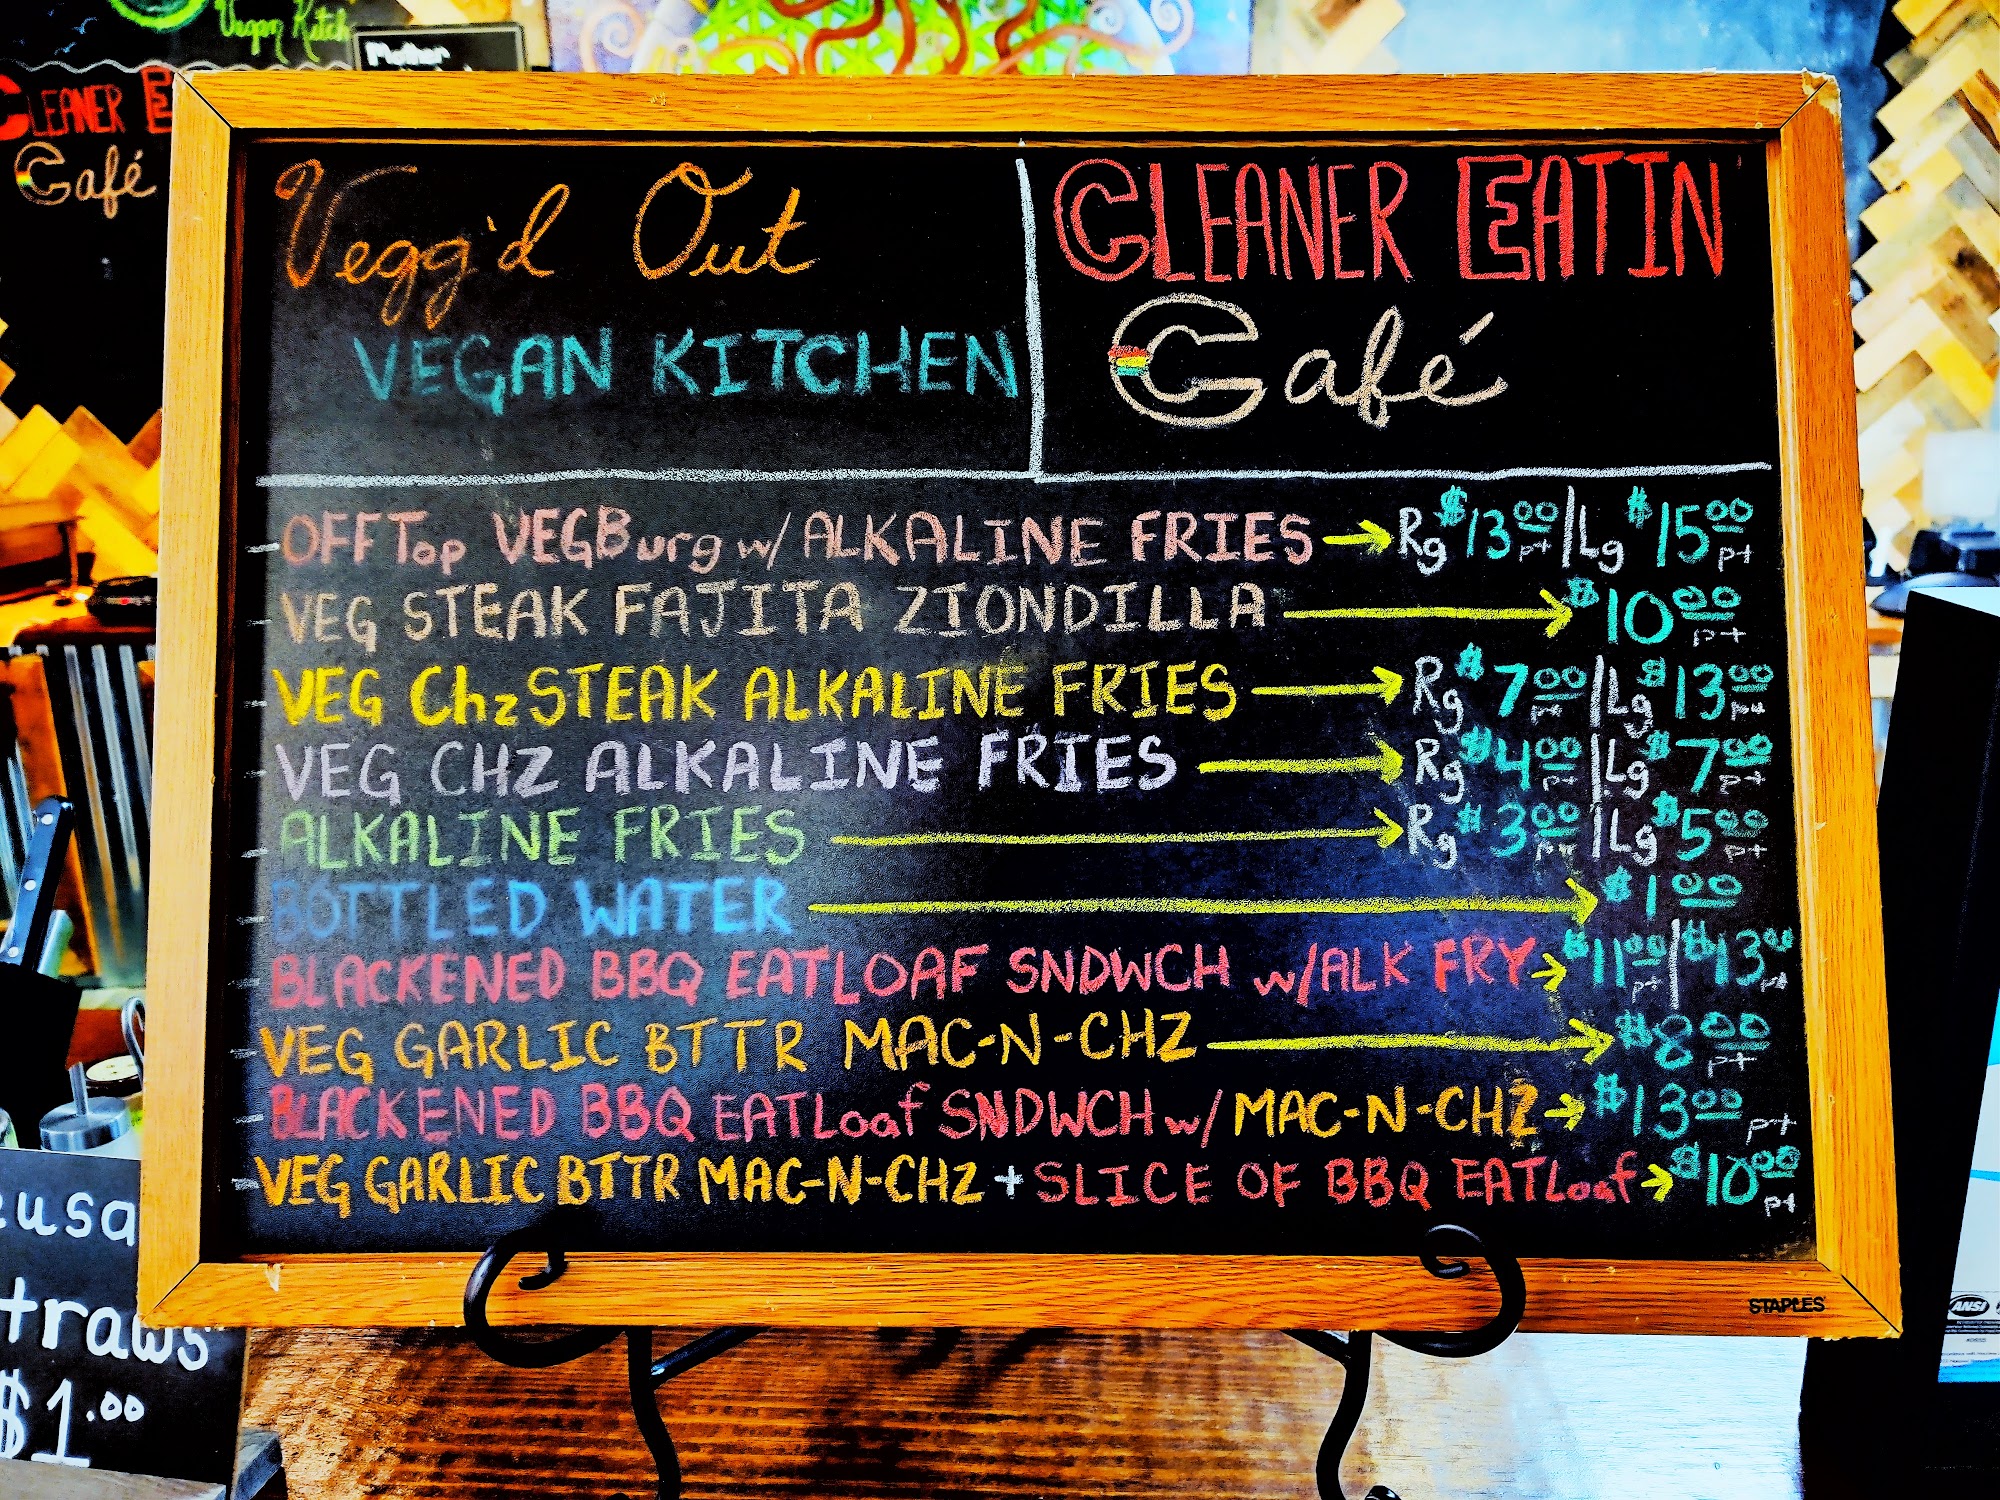 Vegan Kitch
Mother
CLEANER E
Café
Vegg'd Out
VEGAN KITCHEN
CLEANER EATIN'
Café
- OFFTop VEGBurg w/ ALKALINE FRIES → Rg $13.00 pt | Lg $15.00 pt
- VEG STEAK FAJITA ZIONDILLA → $10.00 pt
- VEG ChzSTEAK ALKALINE FRIES → Rg $7.00 pt | Lg $13.00 pt
- VEG CHZ ALKALINE FRIES → Rg $4.00 pt | Lg $7.00 pt
- ALKALINE FRIES → Rg $3.00 pt | Lg $5.00 pt
- BOTTLED WATER → $1.00
- BLACKENED BBQ EATLOAF SNDWCH w/ALK FRY → $11.00 pt | $13.00 pt
- VEG GARLIC BTTR MAC-N-CHZ → $8.00 pt
- BLACKENED BBQ EATLoaf SNDWCH w/ MAC-N-CHZ → $13.00 pt
- VEG GARLIC BTTR MAC-N-CHZ + SLICE OF BBQ EATLoaf → $10.00 pt
STAPLES
eusa
traws
$1.00
ANSI